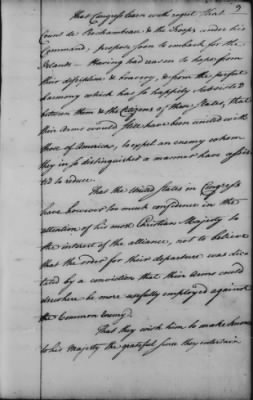 9
That Congress learn with regret that
Count de Rochambeau & the Troops under his
Command, propose soon to embark for the
Islands — Having had reason to hope from
their discipline & bravery, & from the perfect
harmony which has so happily subsisted
between them & the Citizens of these States, that
their Arms would still have been united with
those of America, to expel an enemy whom
they in so distinguished a manner have assis
ted to reduce.
That the United States in Congress
have however too much confidence in the
attention of his most Christian Majesty to
the interest of the alliance, not to believe
that the order for their departure was dic
tated by a conviction that their Arms could
elsewhere be more usefully employed against
the Common Enemy.
That they wish him to make known
to his Majesty the grateful sense they entertain